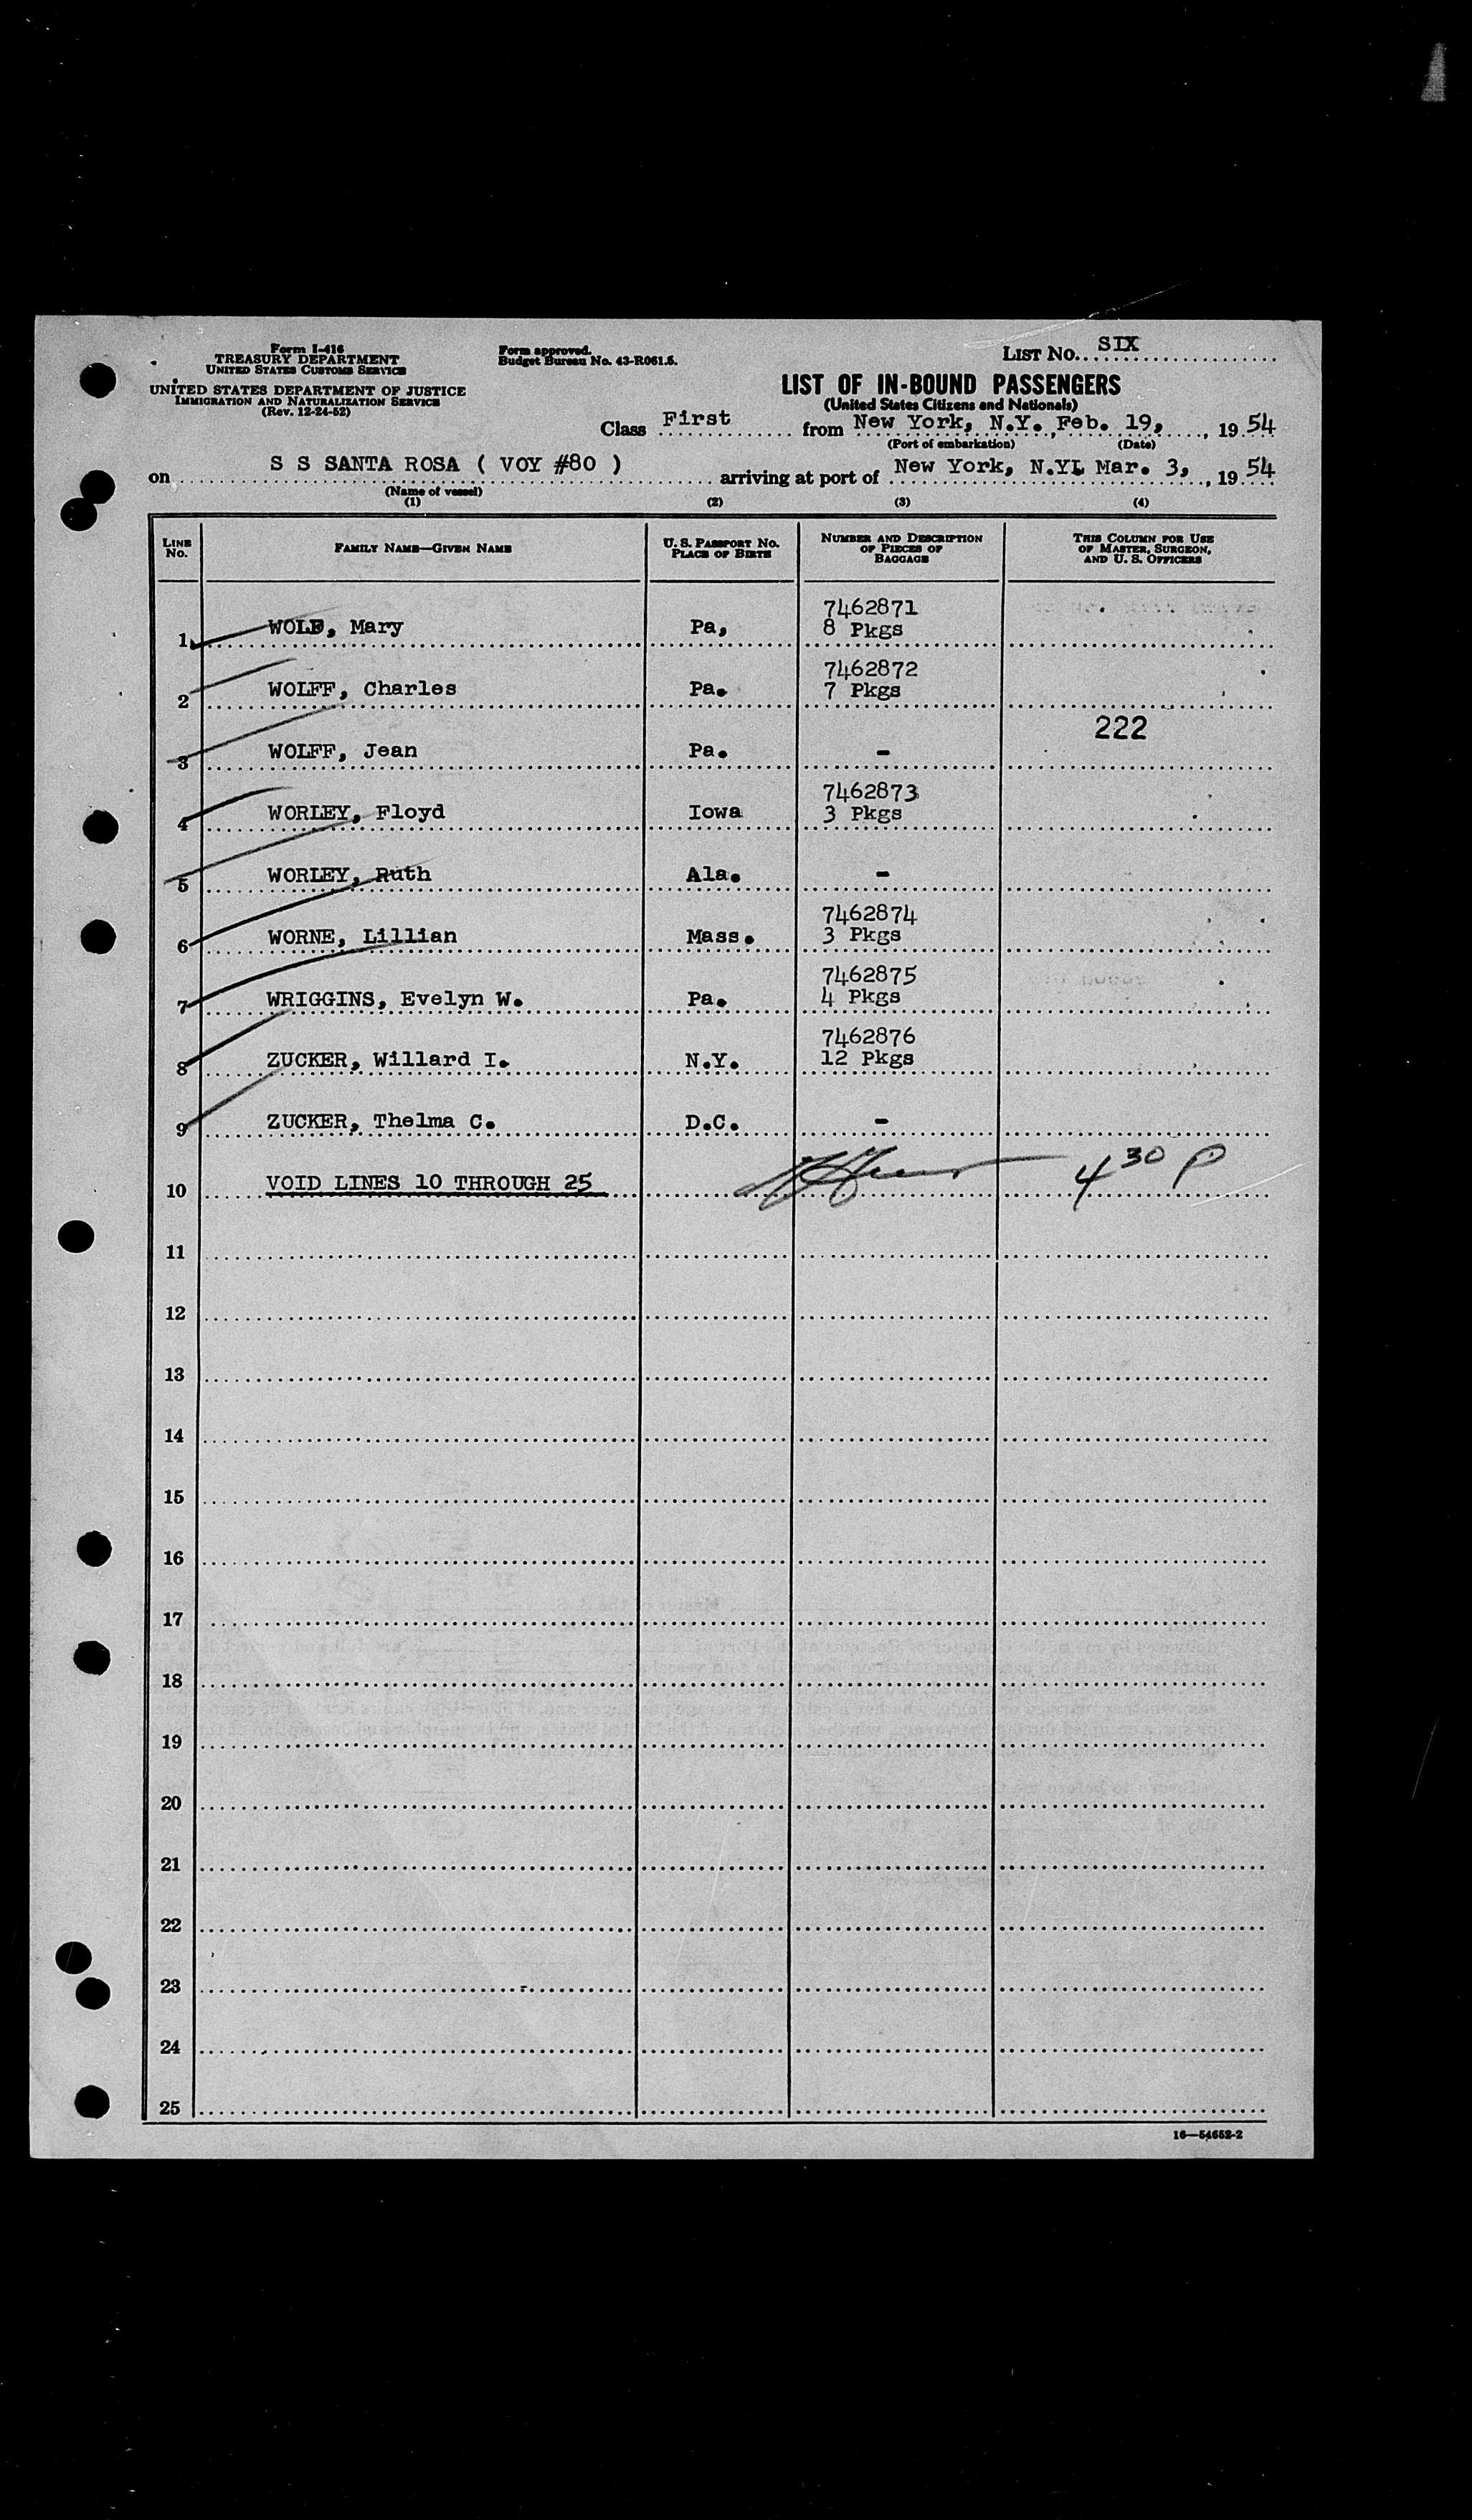 Form I-416
TREASURY DEPARTMENT
UNITED STATES CUSTOMS SERVICE
UNITED STATES DEPARTMENT OF JUSTICE
IMMIGRATION AND NATURALIZATION SERVICE
(Rev. 12-24-52)
Form approved.
Budget Bureau No. 43-R061.5.
LIST No. SIX
LIST OF IN-BOUND PASSENGERS
(United States Citizens and Nationals)
Class First from New York, N.Y. Feb. 19, , 19 54
(Port of embarkation) (Date)
on S S SANTA ROSA ( VOY #80 ) arriving at port of New York, N.Y. Mar. 3, , 19 54
(Name of vessel)
(1) (2) (3) (4)
LINE No. FAMILY NAME—GIVEN NAME U. S. PASSPORT NO. PLACE OF BIRTH NUMBER AND DESCRIPTION OF PIECES OF BAGGAGE THIS COLUMN FOR USE OF MASTER, SURGEON, AND U. S. OFFICERS
7462871
1 WOLF, Mary Pa, 8 Pkgs
7462872
2 WOLFF, Charles Pa. 7 Pkgs
222
3 WOLFF, Jean Pa. -
7462873
4 WORLEY, Floyd Iowa 3 Pkgs
5 WORLEY, Ruth Ala. -
7462874
6 WORNE, Lillian Mass. 3 Pkgs
7462875
7 WRIGGINS, Evelyn W. Pa. 4 Pkgs
7462876
8 ZUCKER, Willard I. N.Y. 12 Pkgs
9 ZUCKER, Thelma C. D.C. -
10 VOID LINES 10 THROUGH 25 4 30 P
11
12
13
14
15
16
17
18
19
20
21
22
23
24
25
16—54652-2